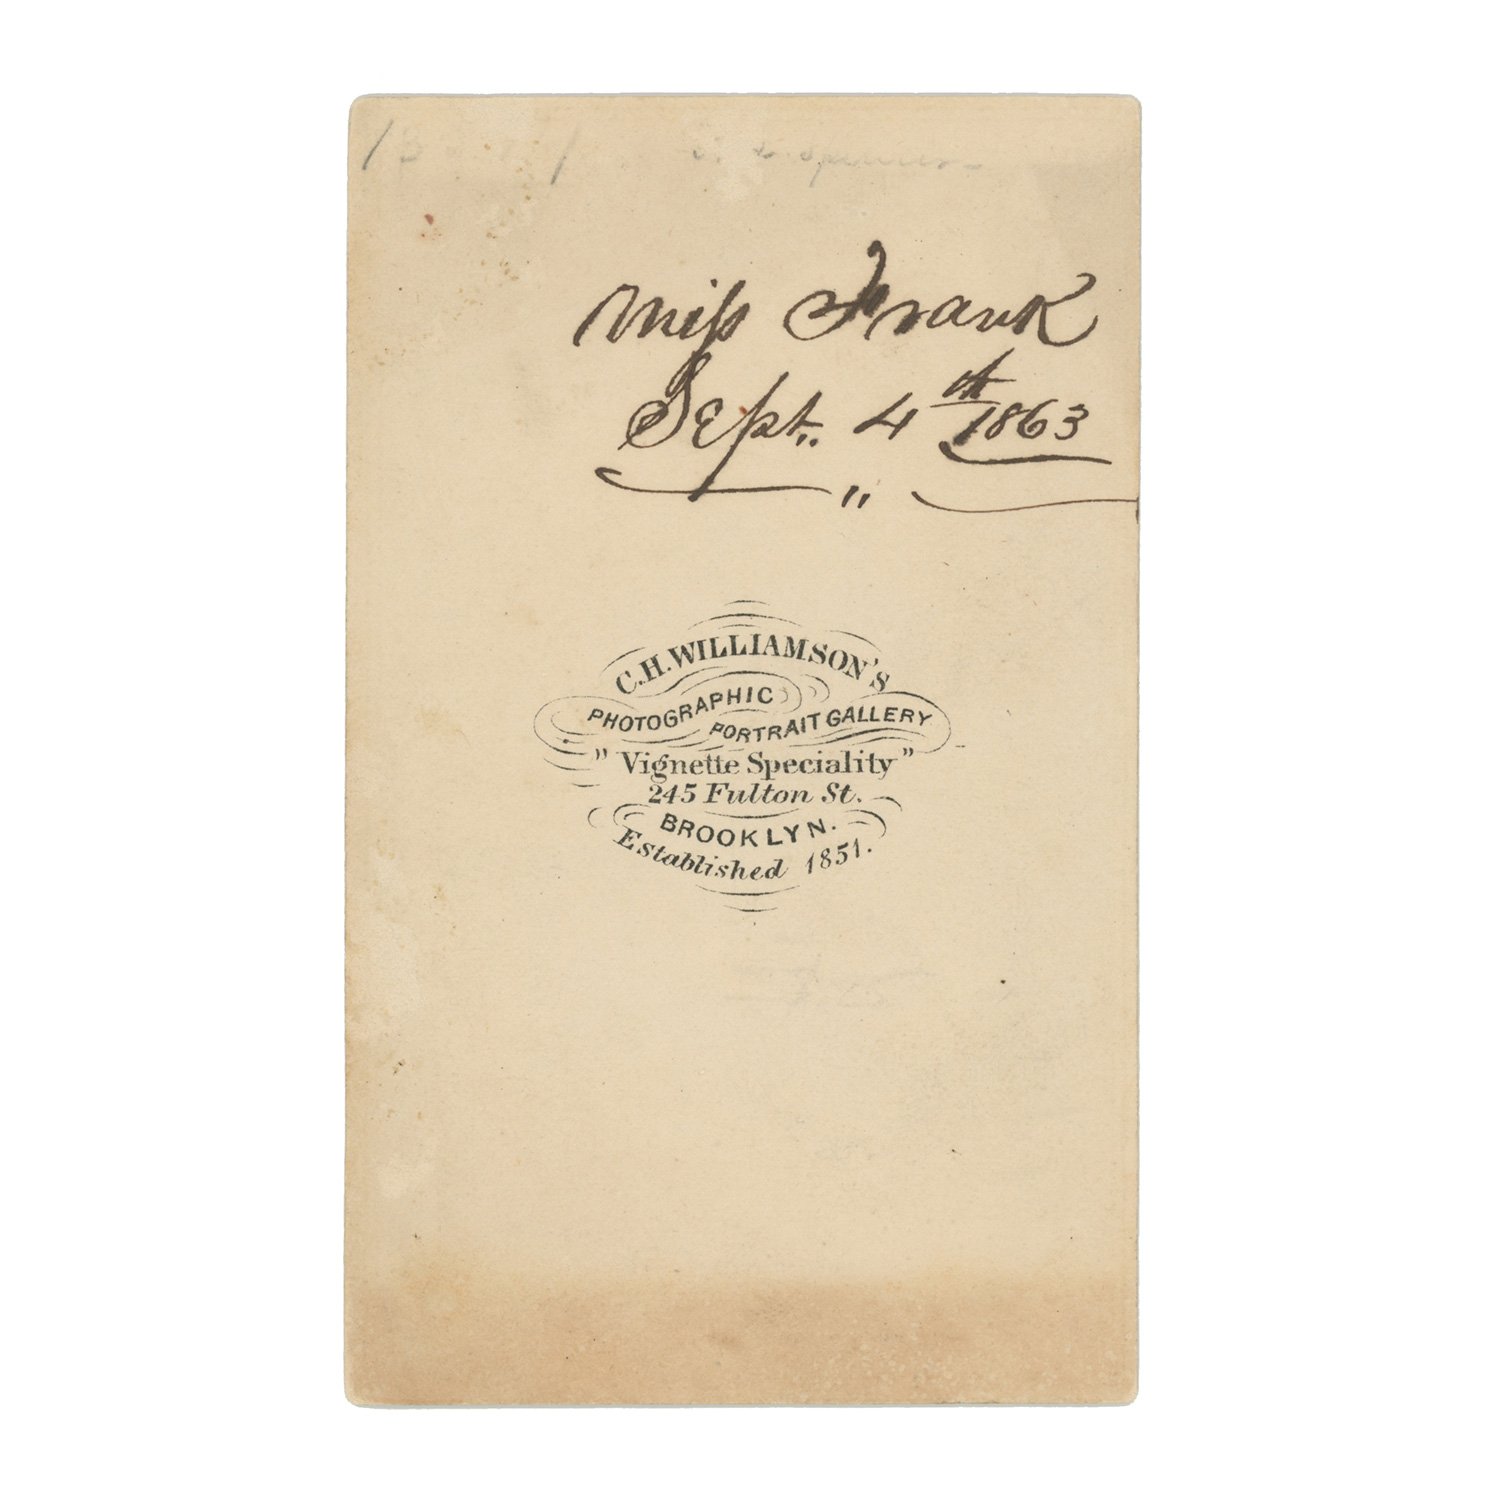 Miss Frank
Sept. 4th 1863
C.H. WILLIAMSON'S
PHOTOGRAPHIC
PORTRAIT GALLERY
"Vignette Speciality"
245 Fulton St.
BROOKLYN.
Established 1851.